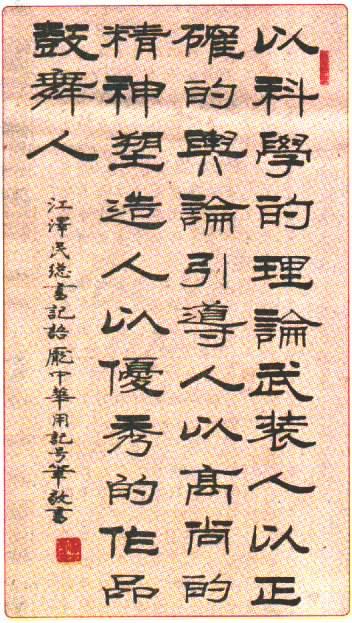 以科學的理論武装人以正
確的輿論引導人以高尚的
精神塑造人以優秀的作品
鼓舞人
江澤民總書記語龐中華用記号筆敬書